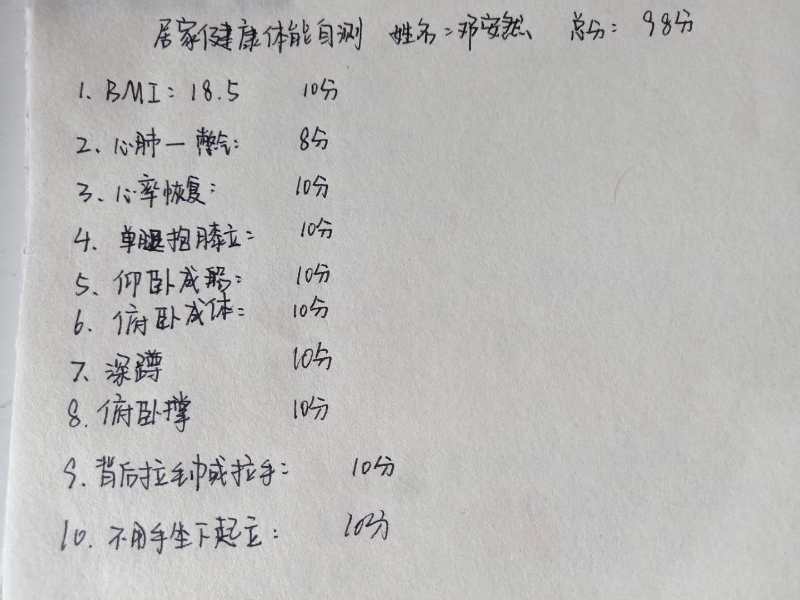 居家健康体能自测 姓名:邓安然 总分: 98分
1、BMI:18.5 10分
2、心肺一憋气: 8分
3、心率恢复: 10分
4、单腿抱膝立: 10分
5、仰卧成形: 10分
6、俯卧成体: 10分
7、深蹲 10分
8、俯卧撑 10分
9、背后拉毛巾或拉手: 10分
10、不用手坐下起立: 10分